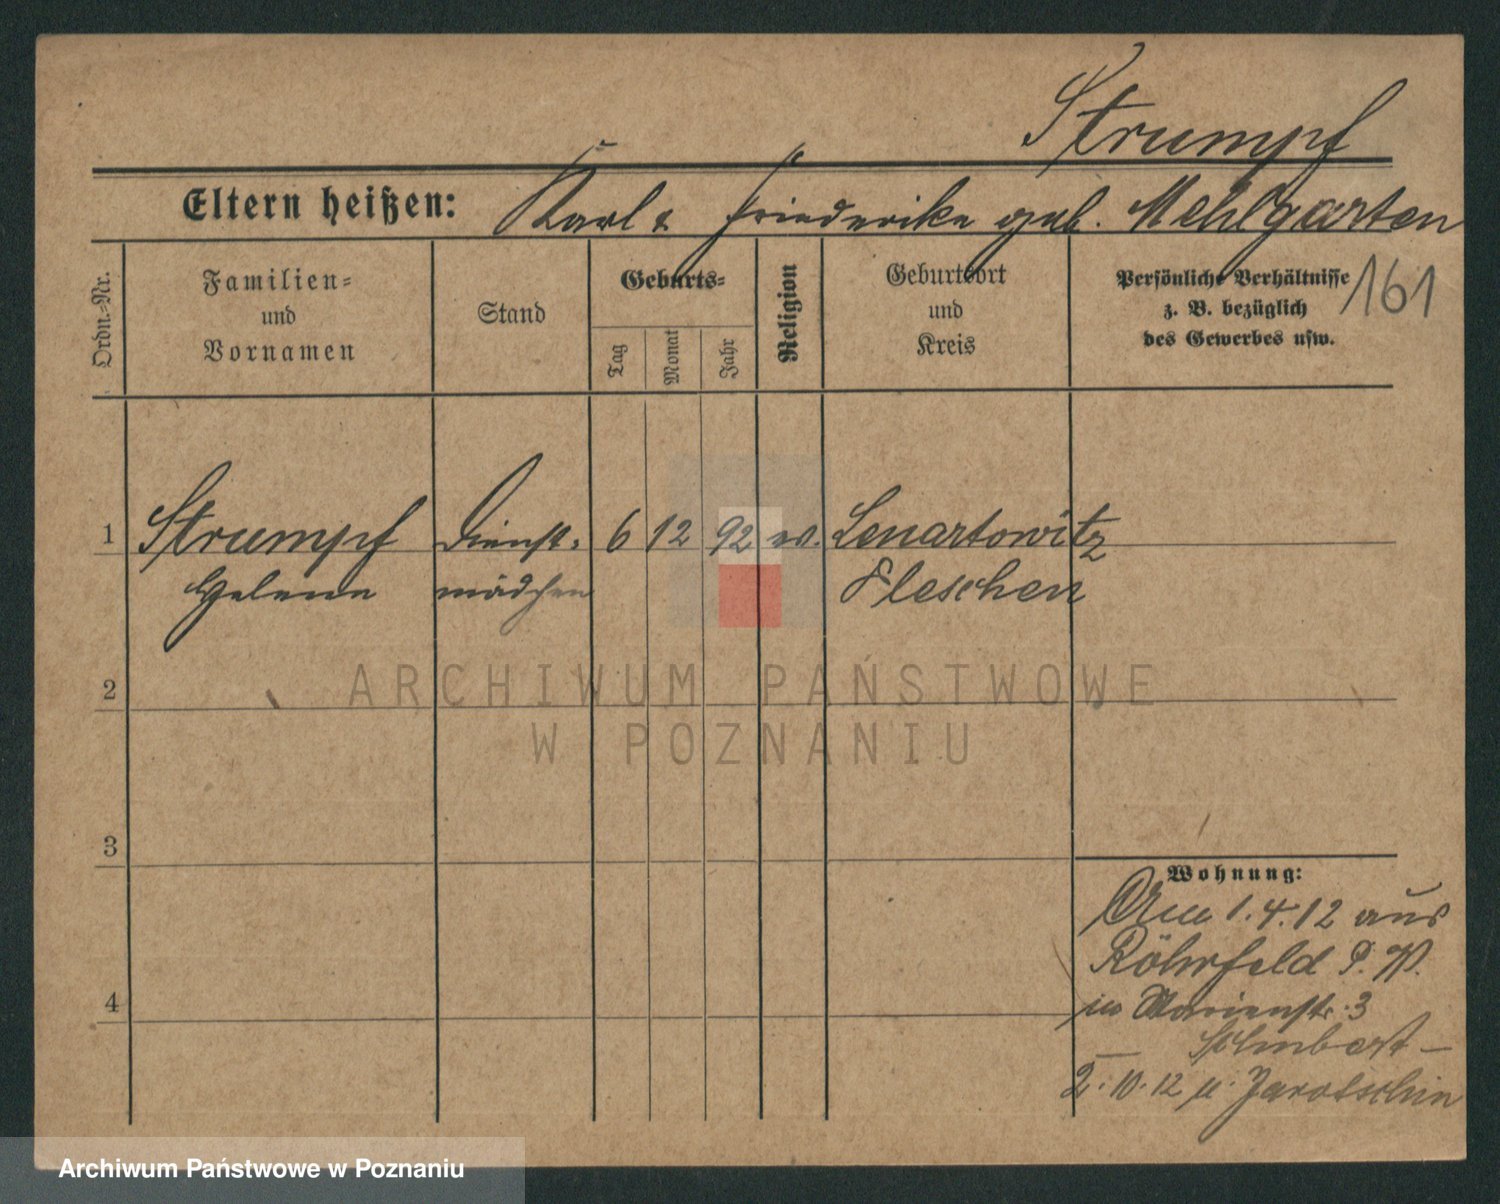 Strumpf
Eltern heißen: Karl & Friederike geb. Mehlgarten
161
Ordn.-Nr.
Familien-
und
Vornamen
Stand
Geburts-
Tag
Monat
Jahr
Religion
Geburtsort
und
Kreis
Persönliche Verhältnisse
z. B. bezüglich
des Gewerbes usw.
1 Strumpf Dienst- 6 12 92 ev. Lenartowitz
Helene mädchen Pleschen
2
3
4
Wohnung:
Am 1.4.12 aus
Röhrfeld P. W.
in Marienstr. 3
2.10.12 n. Jarotschin
ARCHIWUM PAŃSTWOWE
W POZNANIU
Archiwum Państwowe w Poznaniu